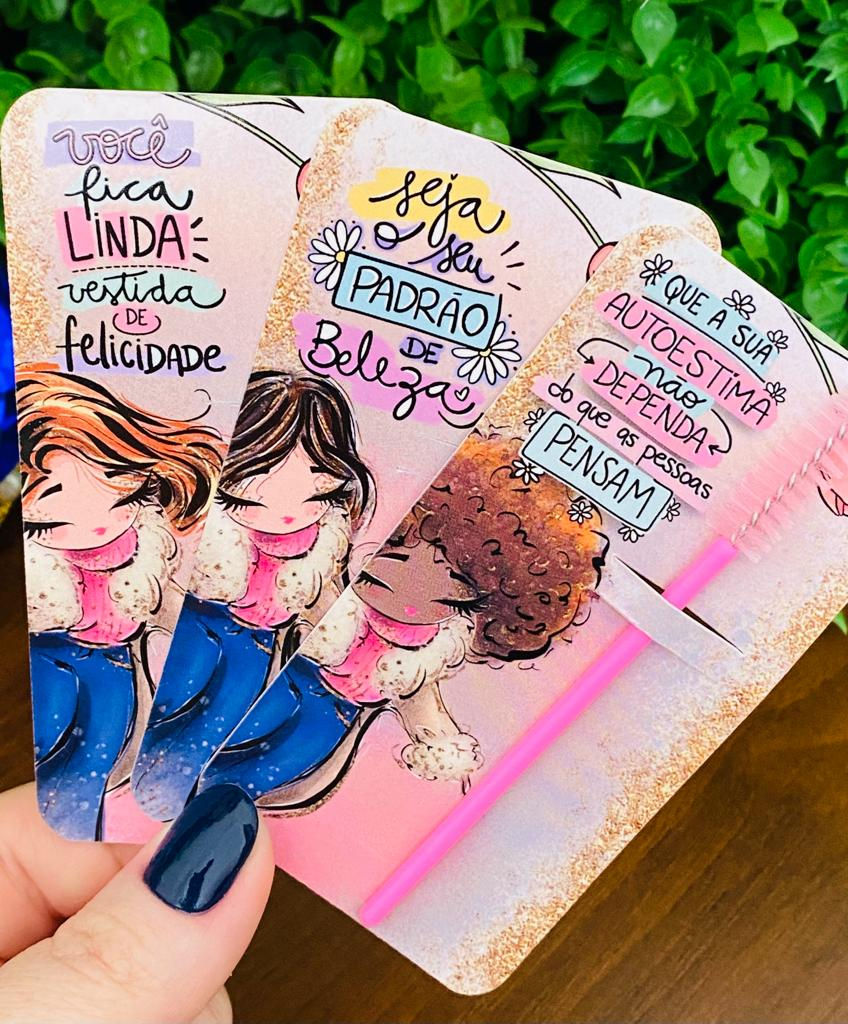 você
fica
LINDA
vestida
DE
felicidade
seja
o seu
PADRÃO
DE
Beleza
QUE A SUA
AUTOESTIMA
não
DEPENDA
do que as pessoas
PENSAM